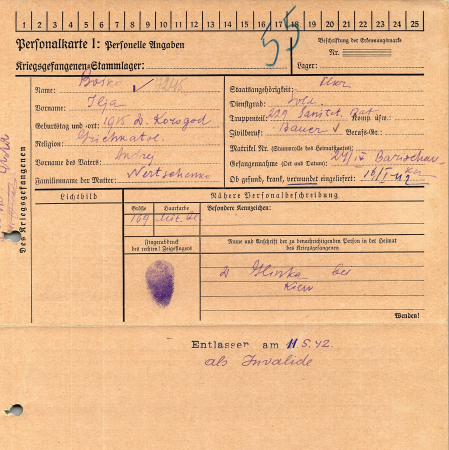 1 2 3 4 5 6 7 8 9 10 11 12 13 14 15 16 17 18 19 20 21 22 23 24 25
Personalkarte I: Personelle Angaben
Kriegsgefangenen-Stammlager:
55
Beschriftung der Erkennungsmarke
Nr.
Lager:
Des Kriegsgefangenen
Name: Bosko
Vorname: Ilja
Geburtstag und -ort: 1915 D. Korogod
Religion: Griechkatol.
Vorname des Vaters: Andrej
Familienname der Mutter: Nertschenko
Staatsangehörigkeit: Ukr.
Dienstgrad: Sold.
Truppenteil: 229 Sanitet. Bat. Komp. usw.:
Zivilberuf: Bauer Berufs-Gr.:
Matrikel Nr. (Stammrolle des Heimatstaates):
Gefangennahme (Ort und Datum):
Ob gesund, krank, verwundet eingeliefert:
Lichtbild
Nähere Personalbeschreibung
Größe
Haarfarbe
Besondere Kennzeichen:
169
Fingerabdruck
des rechten! Zeigefingers
Name und Anschrift der zu benachrichtigenden Person in der Heimat
des Kriegsgefangenen
bei
Kiew
Wenden!
Entlassen am 11.5.42
als Invalide